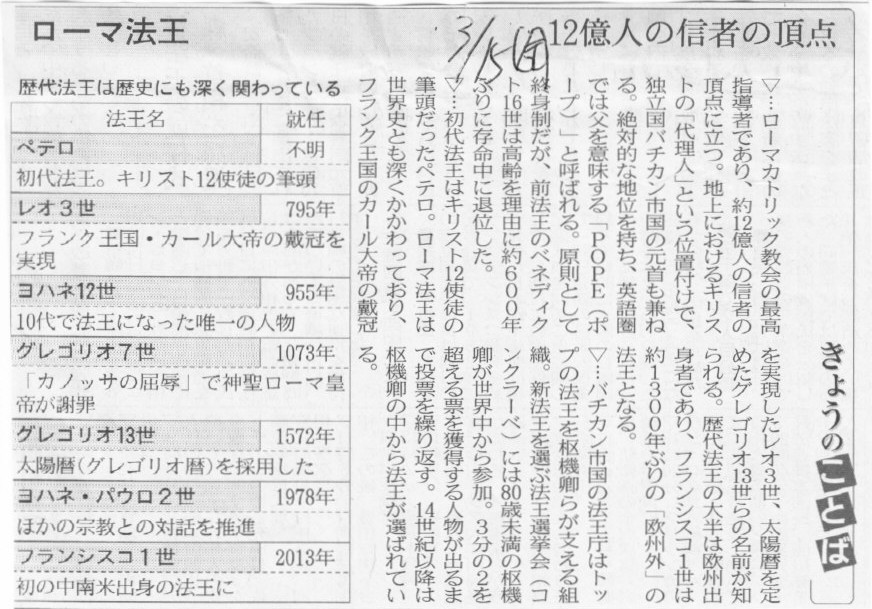 ローマ法王
3/15(金)
12億人の信者の頂点
きょうのことば
▽…ローマカトリック教会の最高
指導者であり、約12億人の信者の
頂点に立つ。地上におけるキリス
トの「代理人」という位置付けで、
独立国バチカン市国の元首も兼ね
る。絶対的な地位を持ち、英語圏
では父を意味する「POPE(ポ
ープ)」と呼ばれる。原則として
終身制だが、前法王のベネディク
ト16世は高齢を理由に約600年
ぶりに存命中に退位した。
▽…初代法王はキリスト12使徒の
筆頭だったペテロ。ローマ法王は
世界史とも深くかかわっており、
フランク王国のカール大帝の戴冠
を実現したレオ3世、太陽暦を定
めたグレゴリオ13世らの名前が知
られる。歴代法王の大半は欧州出
身者であり、フランシスコ1世は
約1300年ぶりの「欧州外」の
法王となる。
▽…バチカン市国の法王庁はトッ
プの法王を枢機卿らが支える組
織。新法王を選ぶ法王選挙会(コ
ンクラーベ)には80歳未満の枢機
卿が世界中から参加。3分の2を
超える票を獲得する人物が出るま
で投票を繰り返す。14世紀以降は
枢機卿の中から法王が選ばれてい
る。
歴代法王は歴史にも深く関わっている
法王名 就任
ペテロ 不明
初代法王。キリスト12使徒の筆頭
レオ3世 795年
フランク王国・カール大帝の戴冠を
実現
ヨハネ12世 955年
10代で法王になった唯一の人物
グレゴリオ7世 1073年
「カノッサの屈辱」で神聖ローマ皇
帝が謝罪
グレゴリオ13世 1572年
太陽暦(グレゴリオ暦)を採用した
ヨハネ・パウロ2世 1978年
ほかの宗教との対話を推進
フランシスコ1世 2013年
初の中南米出身の法王に